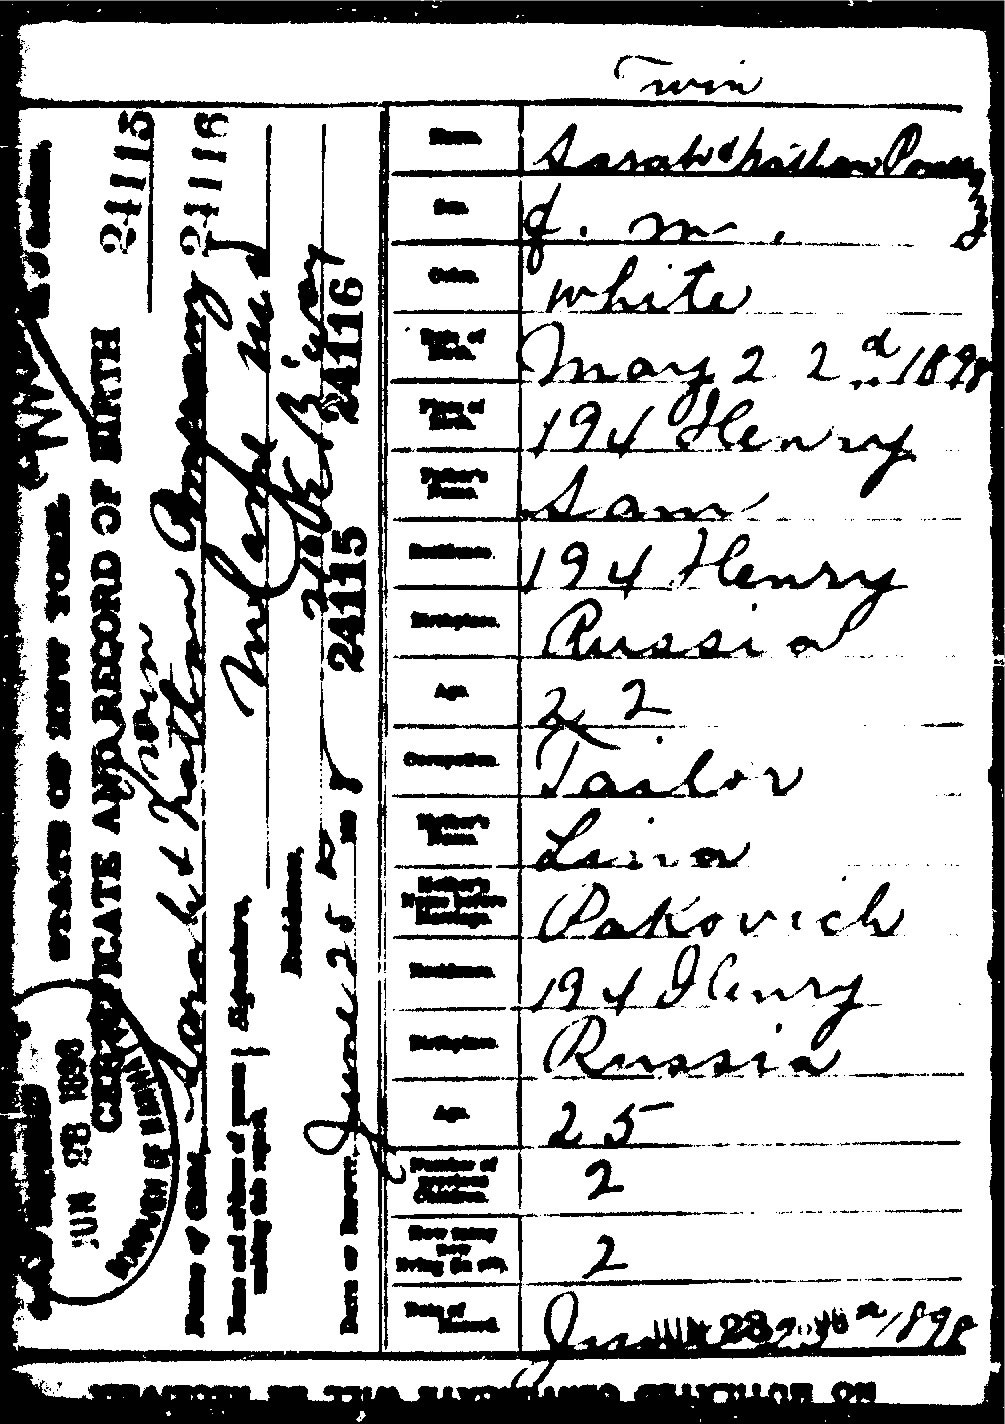 Twin
Name. Sarah & Nathan
Sex. f. m.
Color. white
Date of Birth. May 22d 1898
Place of Birth. 194 Henry
Father's Name. Sam
Residence. 194 Henry
Birthplace. Russia
Age. 22
Occupation. Tailor
Mother's Name. Lina
Mother's Name before Marriage. Rakovich
Residence. 194 Henry
Birthplace. Russia
Age. 25
Number of previous Children. 2
How many now living (in all). 2
Date of Record. June 1898
NO MUTILATED CERTIFICATE WILL BE RECEIVED
STATE OF NEW YORK.
CERTIFICATE AND RECORD OF BIRTH
Twin
24115
Name of Child, Sarah & Nathan 24116
Name and address of person making this report. Signature,
Residence,
DATE OF REPORT, June 25 189 8 24115 24116
JUN 28 1898
BOROUGH OF MANHATTAN